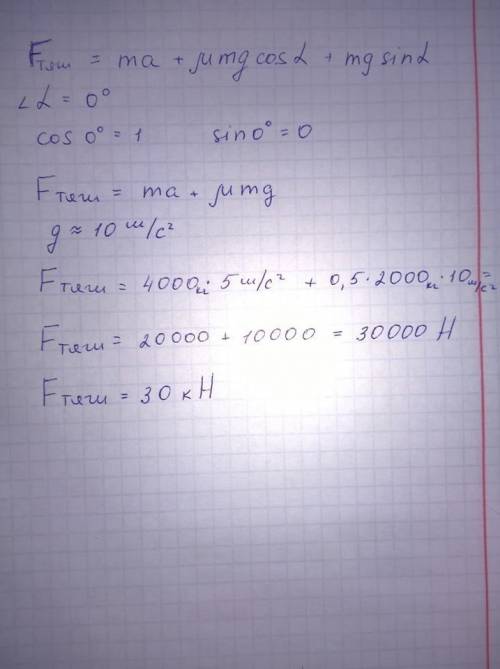 Fтяги = ma + μmg cosα + mg sinα
∠α = 0°
cos 0° = 1 sin 0° = 0
Fтяги = ma + μmg
g ≈ 10 м/с²
Fтяги = 4000кг · 5 м/с² + 0,5 · 2000кг · 10 м/с² =
Fтяги = 20000 + 10000 = 30000 Н
Fтяги = 30 кН